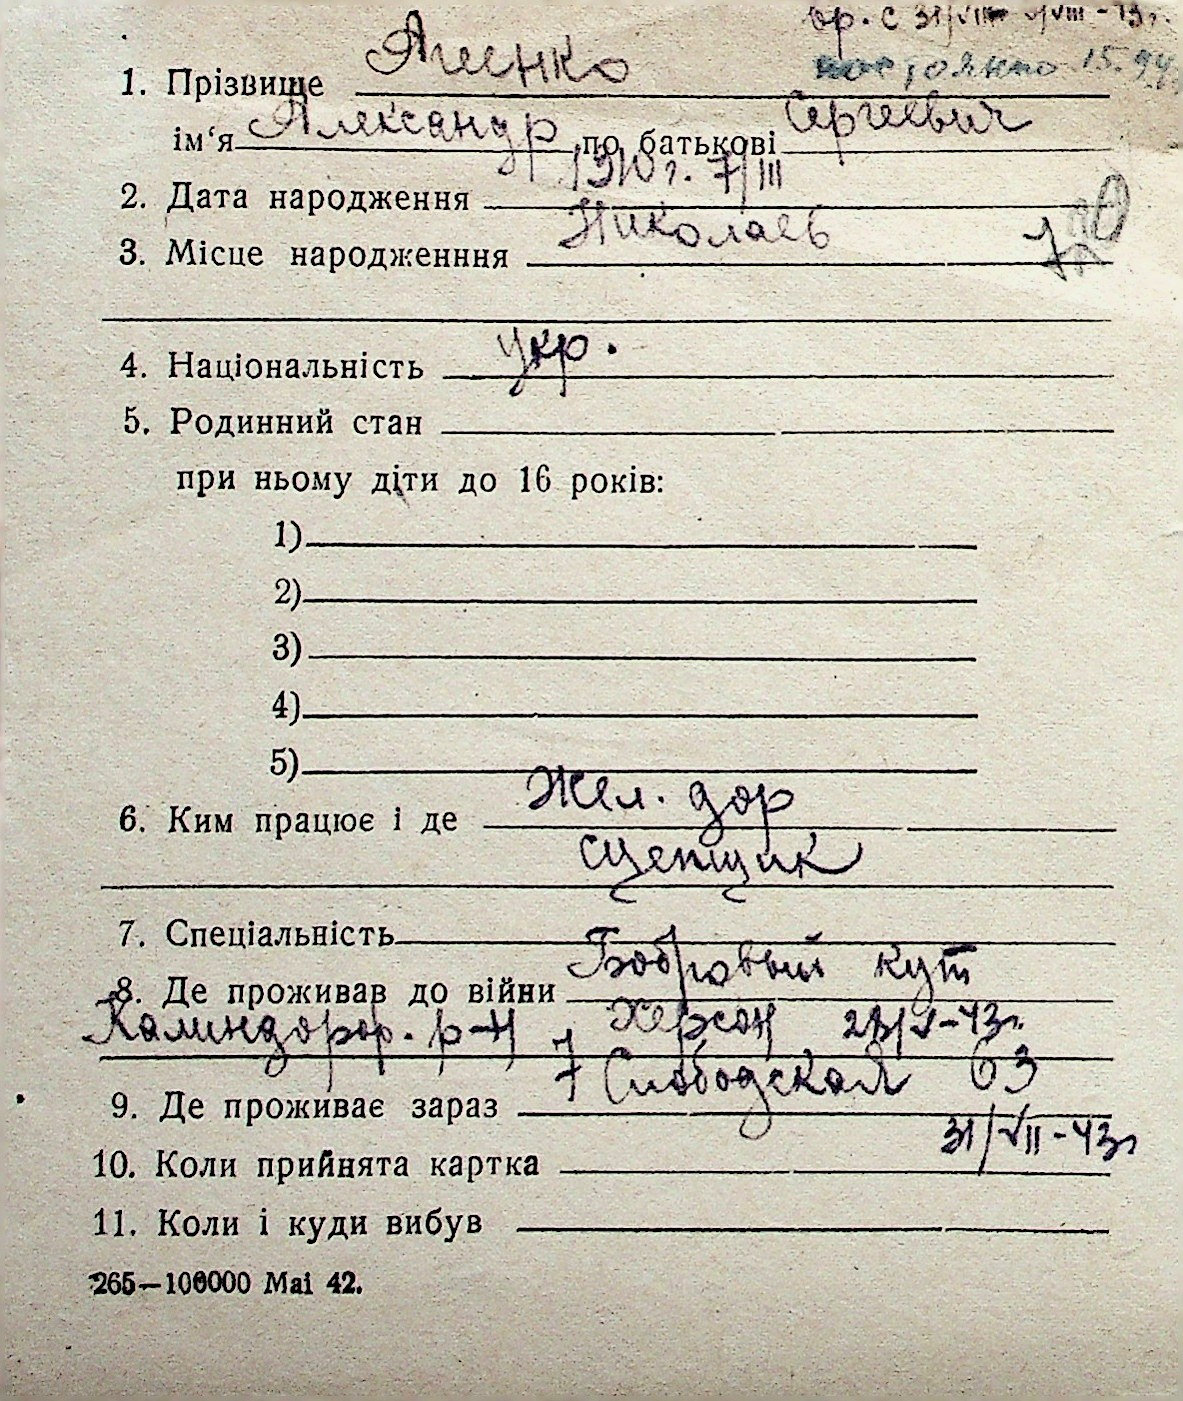 вр. с 31/VII
постоянно 15.
1. Прізвище
ім‘я Александр по батькові Сергеевич
2. Дата народження 1910 г. 7/III
3. Місце народженння Николаев
4. Національність укр.
5. Родинний стан
при ньому діти до 16 років:
1)
2)
3)
4)
5)
6. Ким працює і де Жел. дор
сцепщик
7. Спеціальність
8. Де проживав до війни Бобровый кут
р-н Херсон
9. Де проживає зараз Слободская 63
10. Коли прийнята картка 31/VII-43г
11. Коли і куди вибув
265—100000 Mai 42.